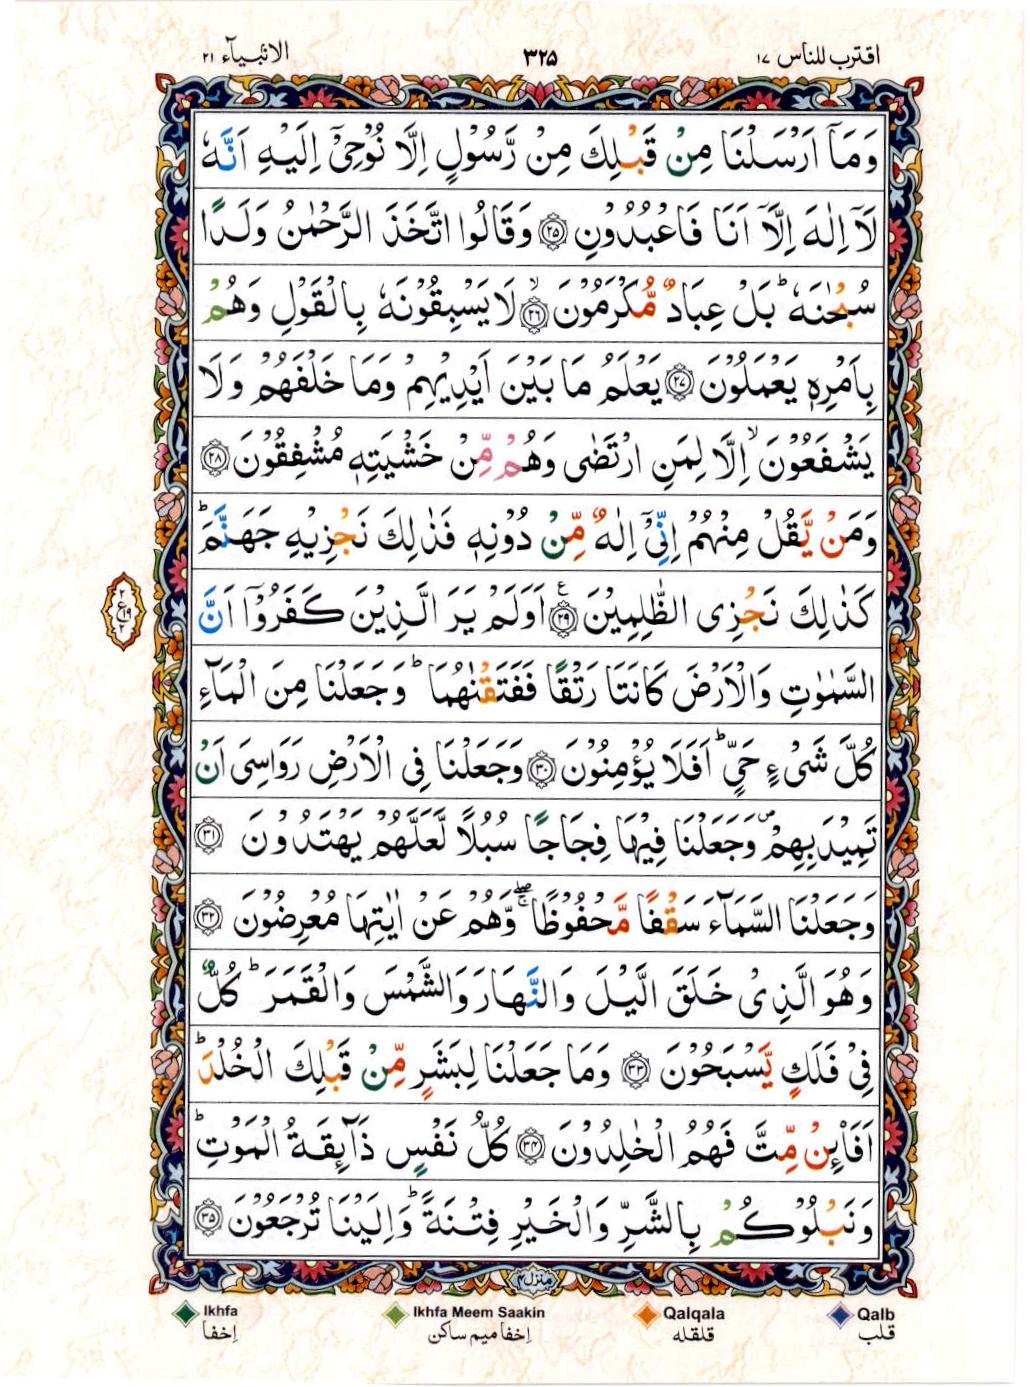 اقترب للناس ١٧
٣٢٥
الانبیآء ٢١
وَمَاۤ اَرْسَلْنَا مِنْ قَبْلِكَ مِنْ رَّسُوْلٍ اِلَّا نُوْحِیْۤ اِلَیْهِ اَنَّهٗ
لَاۤ اِلٰهَ اِلَّاۤ اَنَا فَاعْبُدُوْنِ ﴿۲۵﴾ وَقَالُوا اتَّخَذَ الرَّحْمٰنُ وَلَدًا
سُبْحٰنَهٗ ؕ بَلْ عِبَادٌ مُّكْرَمُوْنَ ۙ﴿۲۶﴾ لَا یَسْبِقُوْنَهٗ بِالْقَوْلِ وَهُمْ
بِاَمْرِهٖ یَعْمَلُوْنَ ﴿۲۷﴾ یَعْلَمُ مَا بَیْنَ اَیْدِیْهِمْ وَمَا خَلْفَهُمْ وَلَا
یَشْفَعُوْنَ ۙ اِلَّا لِمَنِ ارْتَضٰی وَهُمْ مِّنْ خَشْیَتِهٖ مُشْفِقُوْنَ ﴿۲۸﴾
وَمَنْ یَّقُلْ مِنْهُمْ اِنِّیْۤ اِلٰهٌ مِّنْ دُوْنِهٖ فَذٰلِكَ نَجْزِیْهِ جَهَنَّمَ ؕ
كَذٰلِكَ نَجْزِی الظّٰلِمِیْنَ ﴿۲۹﴾ ع اَوَلَمْ یَرَ الَّذِیْنَ كَفَرُوْۤا اَنَّ
٢
ع ١٩
٢
السَّمٰوٰتِ وَالْاَرْضَ كَانَتَا رَتْقًا فَفَتَقْنٰهُمَا ؕ وَجَعَلْنَا مِنَ الْمَآءِ
كُلَّ شَیْءٍ حَیٍّ ؕ اَفَلَا یُؤْمِنُوْنَ ﴿۳۰﴾ وَجَعَلْنَا فِی الْاَرْضِ رَوَاسِیَ اَنْ
تَمِیْدَ بِهِمْ ۪ وَجَعَلْنَا فِیْهَا فِجَاجًا سُبُلًا لَّعَلَّهُمْ یَهْتَدُوْنَ ﴿۳۱﴾
وَجَعَلْنَا السَّمَآءَ سَقْفًا مَّحْفُوْظًا ۖۚ وَّهُمْ عَنْ اٰیٰتِهَا مُعْرِضُوْنَ ﴿۳۲﴾
وَهُوَ الَّذِیْ خَلَقَ الَّیْلَ وَالنَّهَارَ وَالشَّمْسَ وَالْقَمَرَ ؕ كُلٌّ
فِیْ فَلَكٍ یَّسْبَحُوْنَ ﴿۳۳﴾ وَمَا جَعَلْنَا لِبَشَرٍ مِّنْ قَبْلِكَ الْخُلْدَ ؕ
اَفَا۠ئِنْ مِّتَّ فَهُمُ الْخٰلِدُوْنَ ﴿۳۴﴾ كُلُّ نَفْسٍ ذَآىِٕقَةُ الْمَوْتِ ؕ
وَنَبْلُوْكُمْ بِالشَّرِّ وَالْخَیْرِ فِتْنَةً ؕ وَاِلَیْنَا تُرْجَعُوْنَ ﴿۳۵﴾
منزل ٤
Ikhfa
Ikhfa Meem Saakin
Qalqala
Qalb
اِخفا
اِخفا میم ساکن
قلقله
قلب